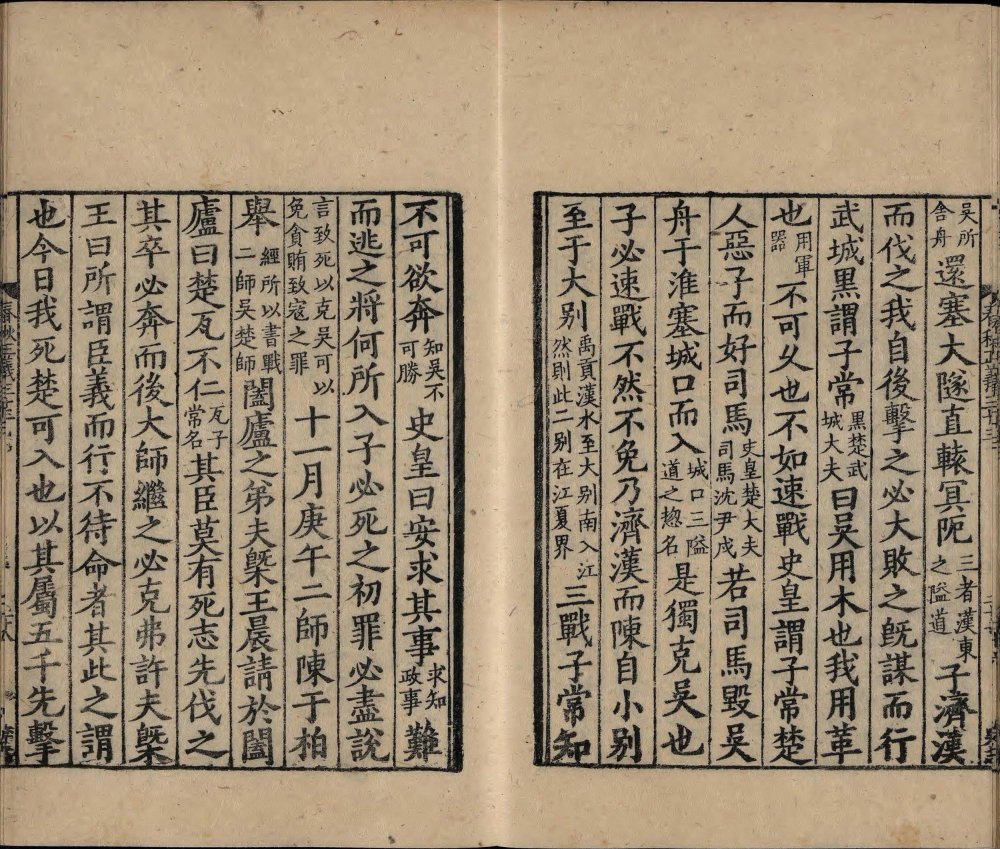 吳所舍舟還塞大隧直轅冥阨三者漢東之隘道子濟漢
而伐之我自後擊之必大敗之既謀而行
武城黑謂子常黑楚武城大夫曰吳用木也我用革
也用軍器不可久也不如速戰史皇謂子常楚
人惡子而好司馬史皇楚大夫司馬沈尹戌若司馬毀吳
舟于淮塞城口而入城口三隘道之揔名是獨克吳也
子必速戰不然不免乃濟漢而陳自小别
至于大别禹貢漢水至大别南入江然則此二别在江夏界三戰子常知
不可欲奔知吳不可勝史皇曰安求其事求知政事難
而逃之將何所入子必死之初罪必盡說
言致死以克吳可以免貪賄致寇之罪十一月庚午二師陳于柏
舉經所以書戰二師吳楚師闔廬之弟夫槩王晨請於闔
廬曰楚瓦不仁瓦子常名其臣莫有死志先伐之
其卒必奔而後大師繼之必克弗許夫槩
王曰所謂臣義而行不待命者其此之謂
也今日我死楚可入也以其屬五千先擊